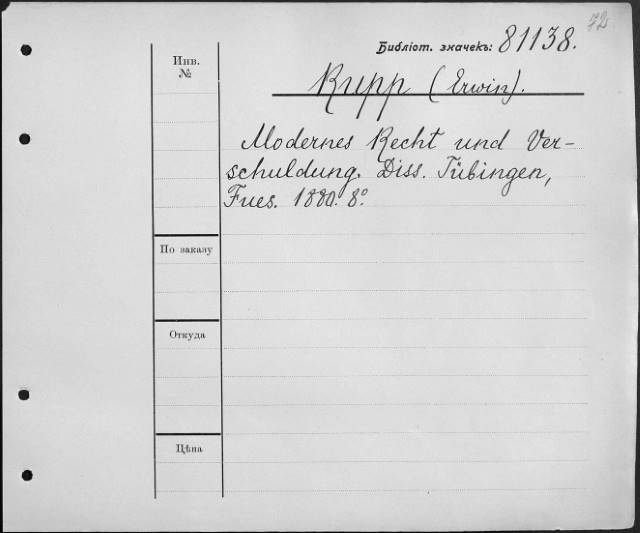 72
Библіот. значекъ: 81138.
Инв.
№
Rupp (Erwin).
Modernes Recht und Ver-
schuldung. Diss. Tübingen,
Fues. 1880. 8º.
По заказу
Откуда
Цѣна